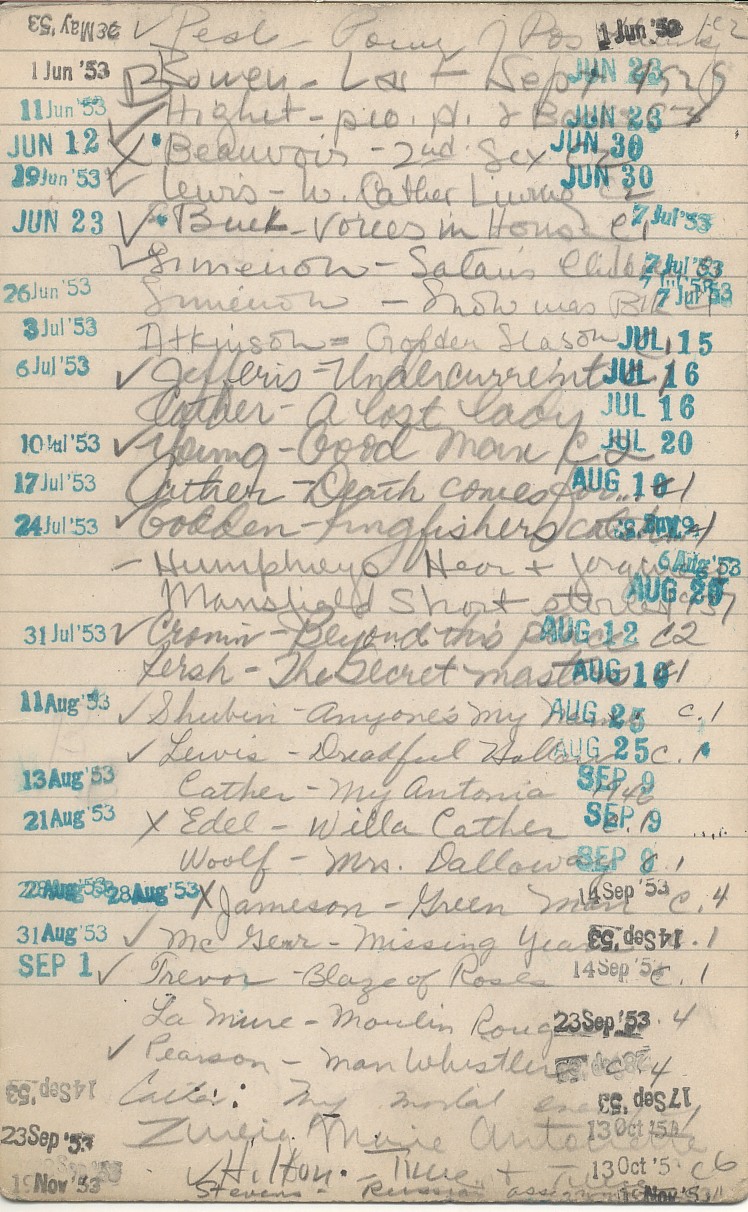 26 May '53 ✓ Peale - Power of Pos 1 Jun '53 c2
1 Jun '53 Bowen - Last Sept JUN 23 1952
11 Jun '53 ✓ Highet - peo. pl. & Books JUN 23
JUN 12 X Beauvoir - 2nd Sex JUN 30 c2
19 Jun '53 ✓ Lewis - W. Cather Living JUN 30 c2
JUN 23 ✓ Buck - Voices in House 7 Jul '53 c1
✓ Simenon - Satan's Children 7 Jul '53
26 Jun '53 Simenon - Snow was Blk 7 Jul '53
3 Jul '53 Atkinson - Golden Season JUL 15 c1
6 Jul '53 ✓ Jefferis - Undercurrent JUL 16
Cather - A Lost Lady JUL 16
10 Jul '53 ✓ Young - Good Man JUL 20 c2
17 Jul '53 Cather - Death comes for... AUG 10 c1
24 Jul '53 ✓ Godden - Kingfishers catch c1
- Humphreys Hear + 6 Aug '53
Mansfield Short stories AUG 20 1937
31 Jul '53 ✓ Cronin - Beyond this place AUG 12 c2
Kersh - The Secret masters AUG 10 c1
11 Aug '53 ✓ Shubin - Anyone's My Name AUG 25 c.1
✓ Lewis - Dreadful Hollow AUG 25 c.1
13 Aug '53 Cather - My Antonia SEP 9 1946
21 Aug '53 X Edel - Willa Cather SEP 9 c.1
Woolf - Mrs. Dalloway SEP 8 .1
28 Aug '53 28 Aug '53 X Jameson - Green Man 14 Sep '53 c.4
31 Aug '53 ✓ McGerr - Missing Years 14 Sep '53 .1
SEP 1 ✓ Trevor - Blaze of Roses 14 Sep '53 c.1
La Mure - Moulin Rouge 23 Sep '53 .4
✓ Pearson - Man Whistler c.4
14 Sep '53 Cather: My mortal enemy 17 Sep '53
23 Sep '53 Zweig Marie Antoinette 13 Oct '53
✓ Hilton - Time + Time 13 Oct '53 c6
19 Nov '53 Stevens - Russian 1 Nov '53